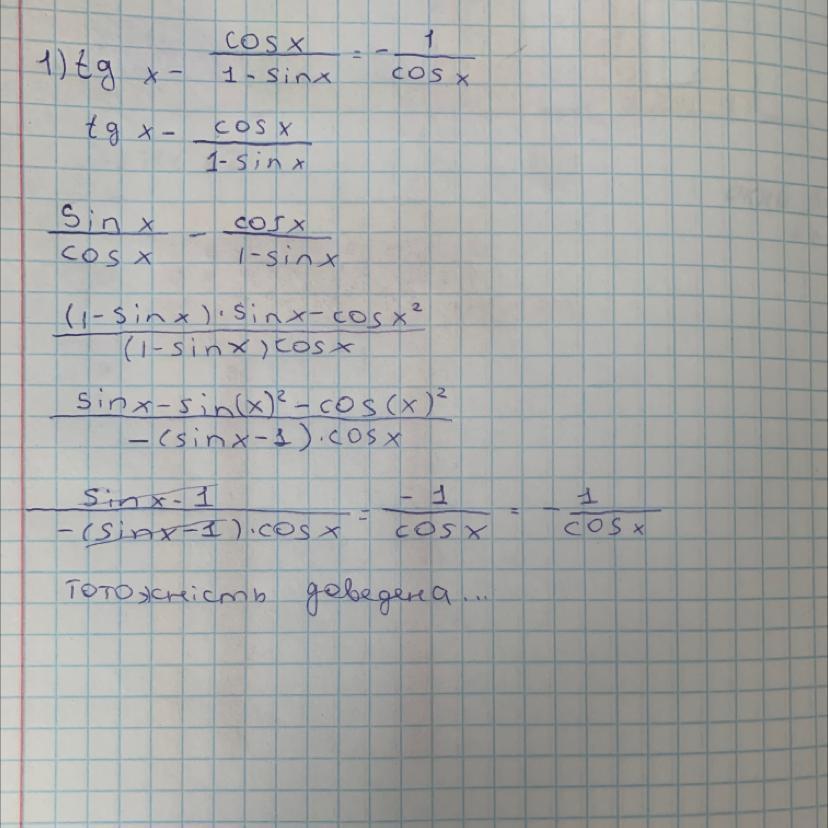 1) tg x - cosx / 1 - sinx = - 1 / cos x
tg x - cosx / 1-sin x
Sin x / cos x - cosx / 1-sinx
(1-sinx)·sinx-cosx² / (1-sinx)cosx
sinx-sin(x)²-cos(x)² / -(sinx-1)·cosx
sinx-1 / -(sinx-1)·cosx = -1 / cosx = - 1 / cosx
Тотожність доведена...